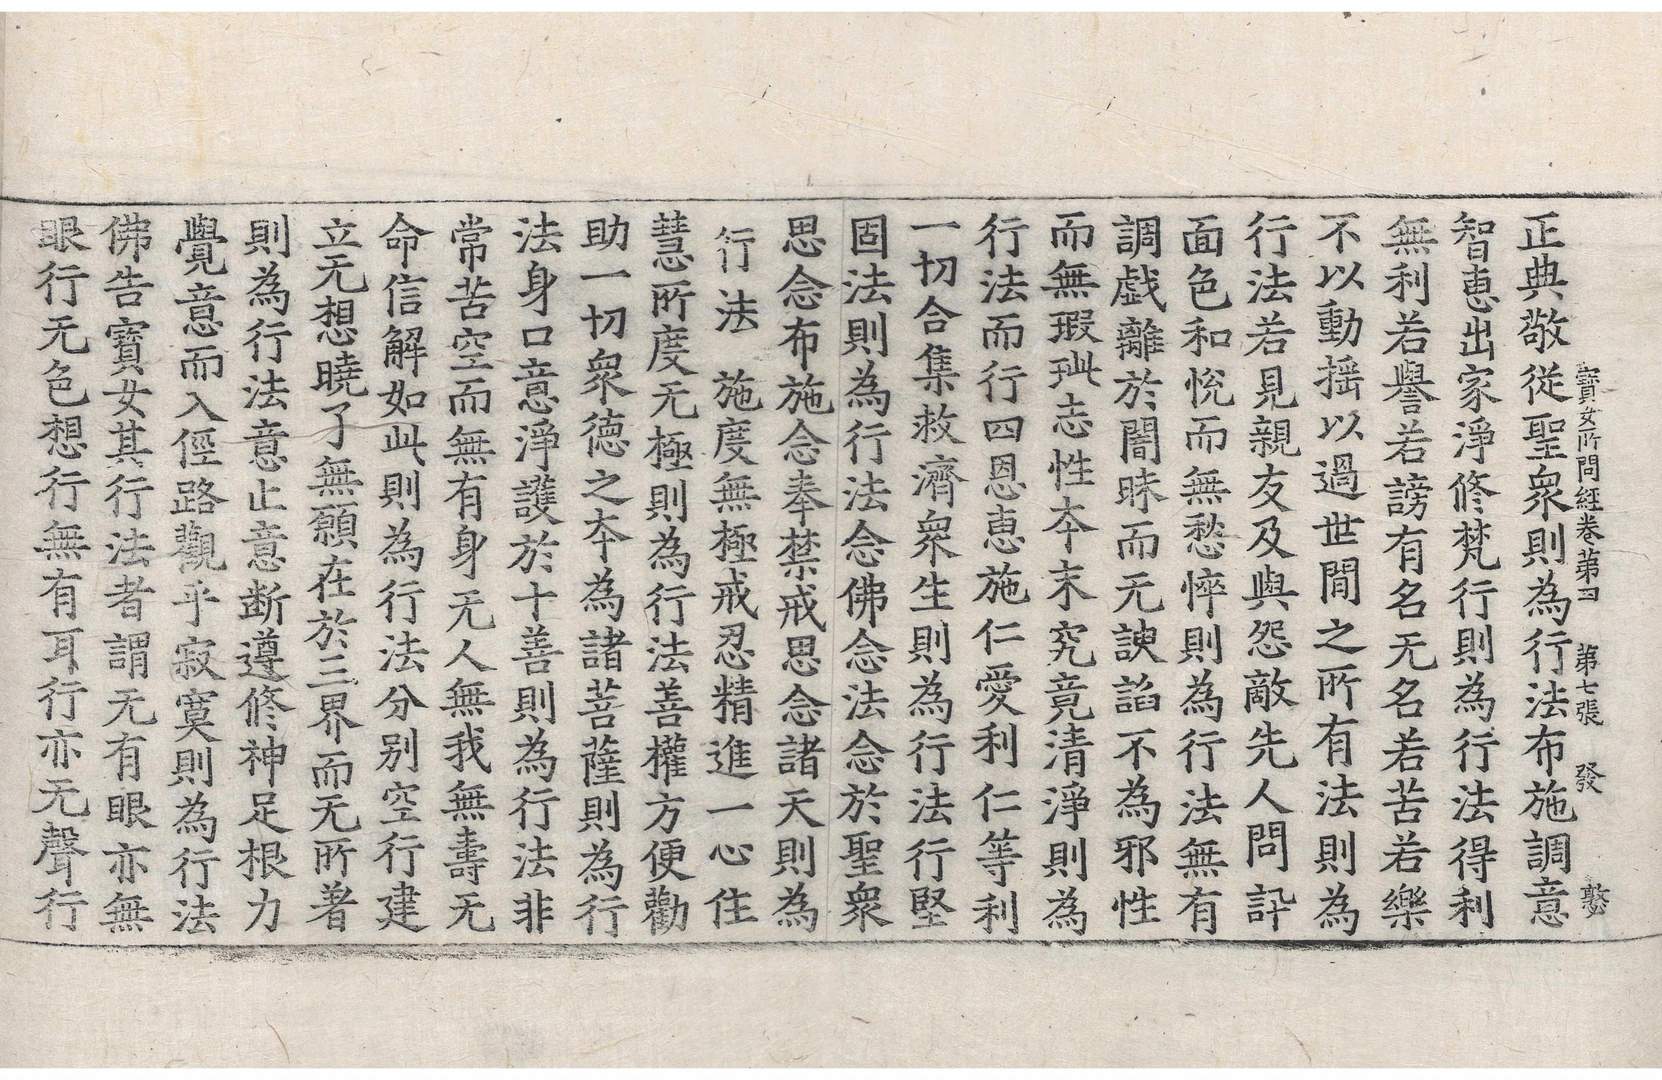 寶女所問經卷第四 第七張 發
正典敬從聖衆則為行法布施調意
智恵出家淨修梵行則為行法得利
無利若譽若謗有名无名若苦若樂
不以動揺以過世間之所有法則為
行法若見親友及與怨敵先人問訊
面色和悅而無愁悴則為行法無有
調戯離於闇昧而无諛諂不為邪性
而無瑕玼志性夲末究竟清淨則為
行法而行四恩恵施仁愛利仁等利
一切合集救濟衆生則為行法行堅
固法則為行法念佛念法念於聖衆
思念布施念奉禁戒思念諸天則為
行法 施度無極戒忍精進一心住
慧所度无極則為行法善權方便勸
助一切衆德之夲為諸菩薩則為行
法身口意淨護於十善則為行法非
常苦空而無有身无人無我無壽无
命信解如此則為行法分別空行建
立无想曉了無願在於三界而无所著
則為行法意止意断遵修神足根力
覺意而入徑路觀乎寂寞則為行法
佛告寶女其行法者謂无有眼亦無
眼行无色想行無有耳行亦无聲行